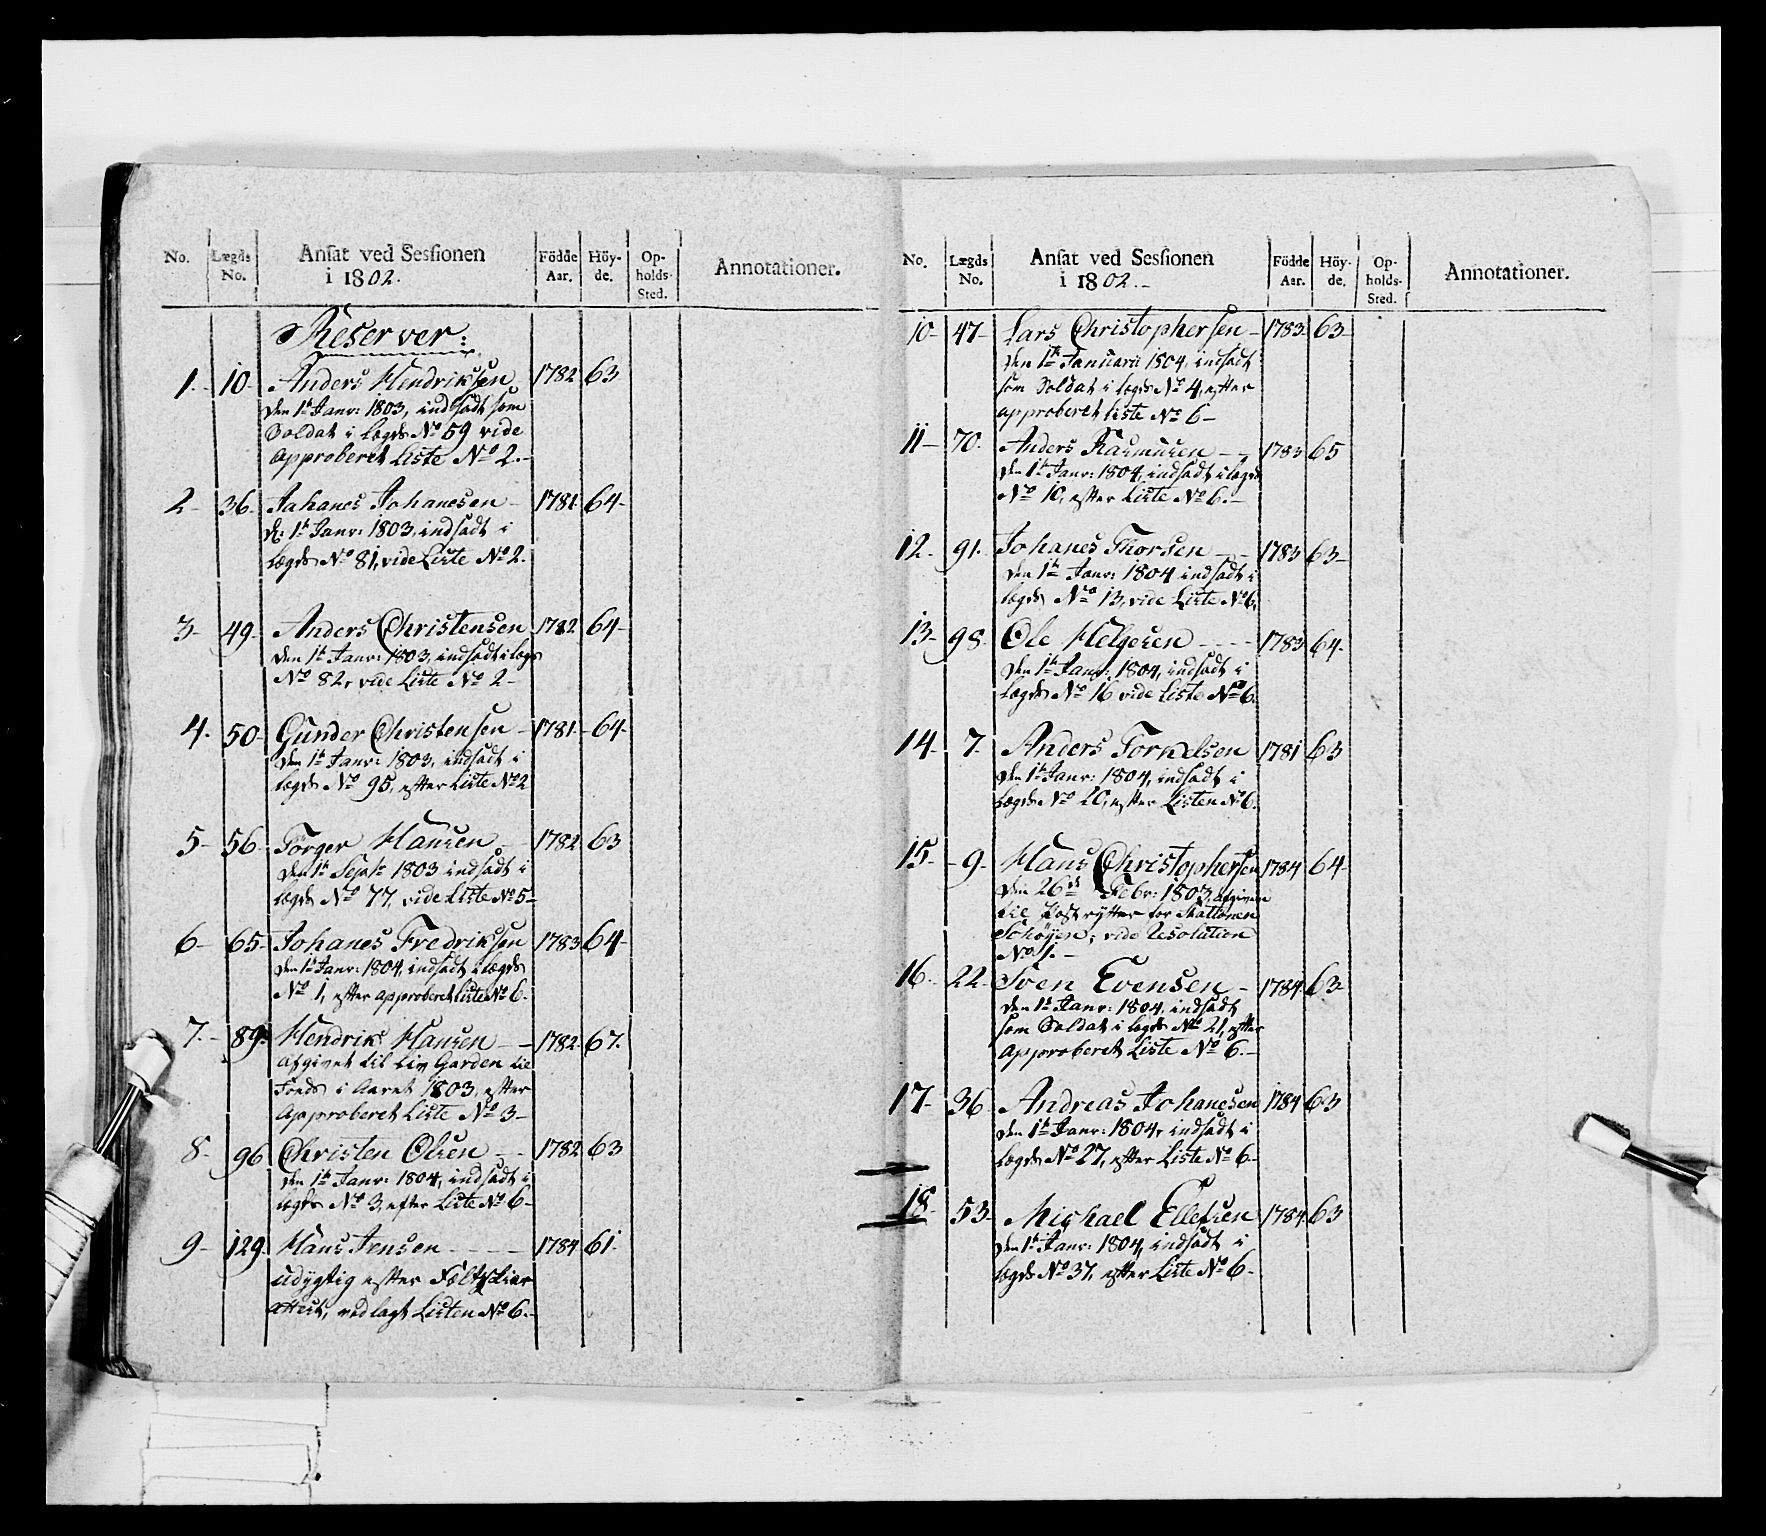 No. Lægds No. Ansat ved Sessionen i 1802. Födde Aar. Höyde. Opholds-Sted. Annotationer.
Reserver:
1. 10 Anders Hendriksen 1782 63
den 1te Janr: 1803, indsadt som
Soldat i Lægds No 59 vide
approberet Liste No 2.
2 36 Johanes Johanesen 1781 64
d: 1te Janr: 1803, indsadt i
Lægds No 81, vide Liste No 2.
3 49 Anders Christensen 1782 64
den 1te Janr: 1803, indsadt i Lægs
No 82, vide Liste No 2
4. 50 Gunder Christensen 1781 64
den 1te Janr: 1803, indsadt i
Lægds No 95, efter Liste No 2
5 56 Törger Hansen 1782 63
den 1te Septr 1803 indsadt i
Lægds No 77, vide Liste No 5
6 65 Johanes Fredriksen 1783 64
den 1te Janr: 1804, indsadt i Lægds
No 1, efter approberet Liste No 6.
7. 89 Hendrik Hansen 1782 67.
afgivet til Liv Garden til
Fods i Aaret 1803, efter
approberet Liste No 3
8 96 Christen Olsen 1782 63
den 1te Janr: 1804, indsadt i
Lægds No 3, efter Liste No 6
9 129 Hans Jensen 1784 61
udygtig efter Feltskiær
attest, vedlagt Listen No 6.
No. Lægds No. Ansat ved Sessionen i 1802. Födde Aar. Höyde. Opholds-Sted. Annotationer.
10 47 Lars Christophersen 1783 63
den 1te Januarii 1804, indsadt
som Soldat i Lægds No 4, efter
approberet Liste No 6
11 70. Anders Rasmusen 1783 65
den 1te Janr: 1804, indsadt i Lægds
No 10, efter Liste No 6.
12. 91. Johanes Thorsen 1783 63
den 1te Janr: 1804 indsadt i
Lægds No 13, vide Liste No 6.
13 98 Ole Helgesen 1783 64.
den 1te Janr: 1804, indsadt i
Lægds No 16 vide Liste No 6.
14 7. Anders Tornelsen 1781 63
den 1te Janr: 1804, indsadt i
Lægds No 20, efter Listen No 6.
15 9 Hans Christophersen 1784 64
den 26de Febr: 1803, afgiven
til Postrytter for Stationen
Schøyen; vide Resolution
No 1.
16. 22 Sven Evensen 1784 63
den 1te Janr: 1804, indsadt
som Soldat i Lægds No 21, efter
approberet Liste No 6.
17 36 Andreas Johanesen 1784 63
den 1te Janr: 1804, indsadt i
Lægds No 27, efter Liste No 6
18 53 Michael Ellefsen 1784 63
den 1te Janr: 1804, indsadt i
Lægds No 37, efter Liste No 6